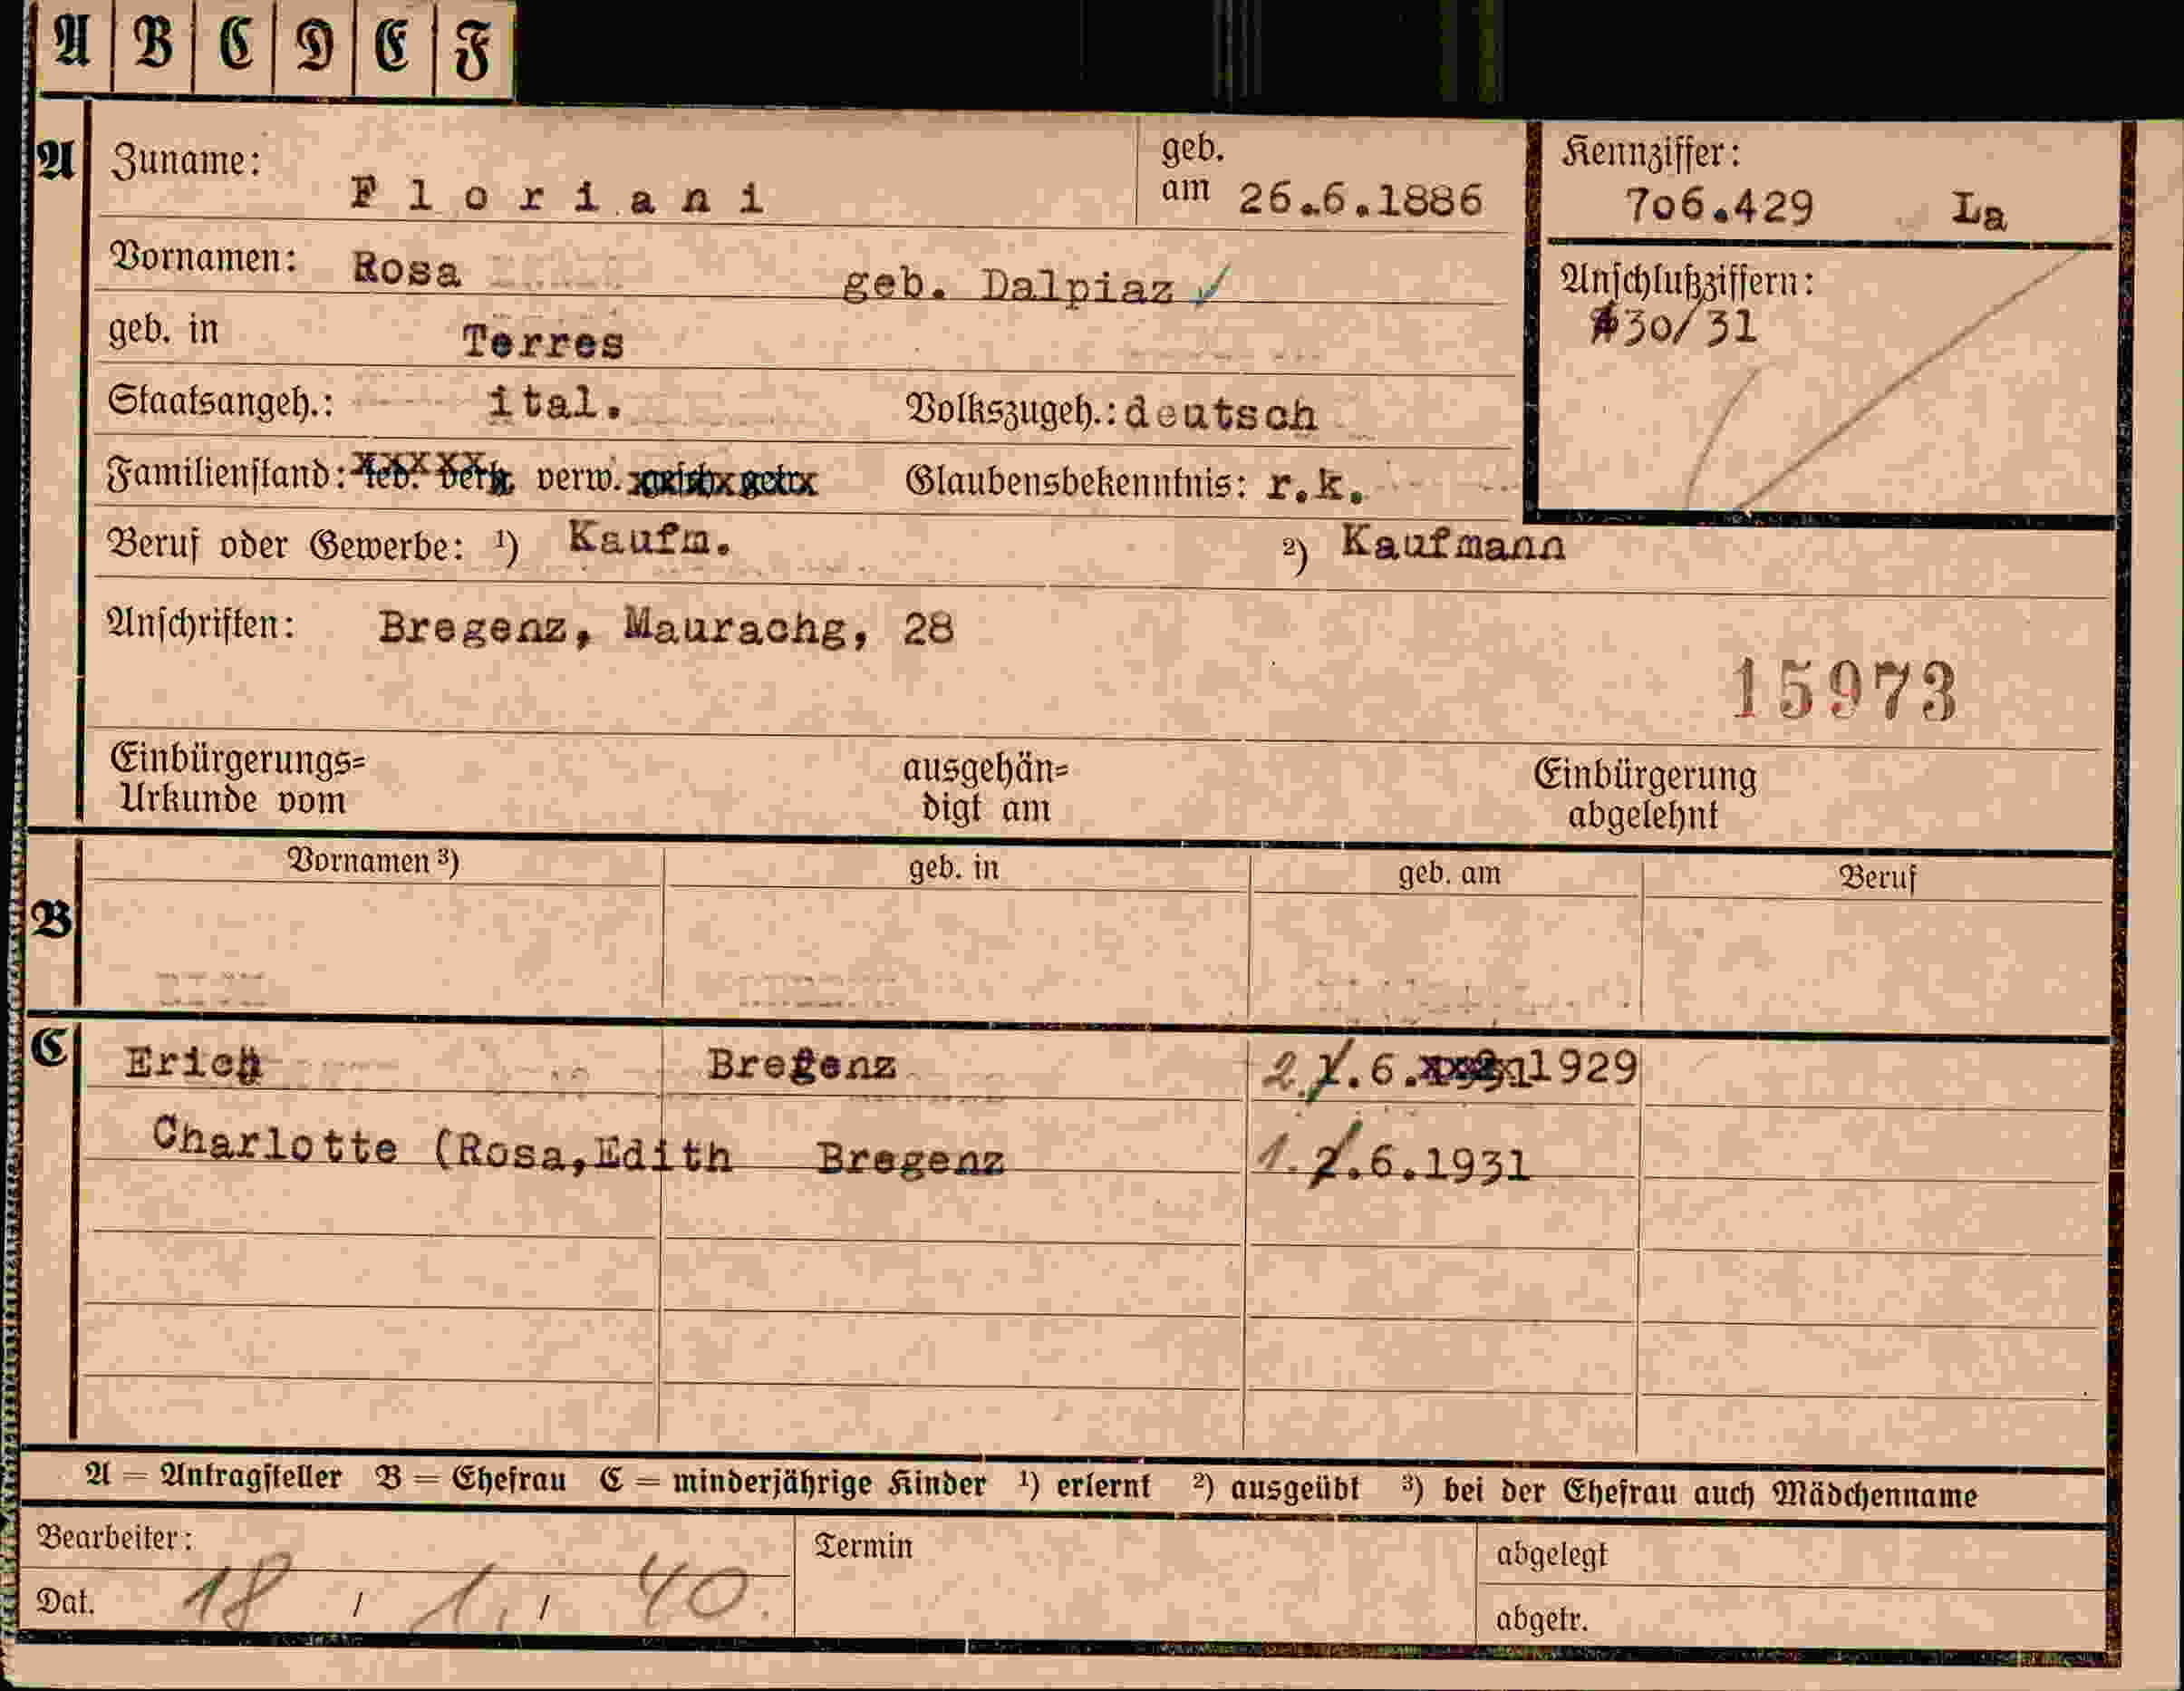 A B C D E F
A Zuname: Floriani geb. am 26.6.1886 Kennziffer: 706.429 La
Vornamen: Rosa geb. Dalpiaz ✓ Anschlußziffern:
geb. in Terres 30/31
Staatsangeh.: ital. Volkszugeh.: deutsch
Familienstand: led. verh. verw. gesch. getr. Glaubensbekenntnis: r.k.
Beruf oder Gewerbe: ¹) Kaufm. ²) Kaufmann
Anschriften: Bregenz, Maurachg, 28
15973
Einbürgerungs=
Urkunde vom
ausgehän=
digt am
Einbürgerung
abgelehnt
B Vornamen ³) geb. in geb. am Beruf
C Erich Bregenz 2.1.6.1929
Charlotte (Rosa,Edith Bregenz 1.2.6.1931
A = Antragsteller B = Ehefrau C = minderjährige Kinder ¹) erlernt ²) ausgeübt ³) bei der Ehefrau auch Mädchenname
Bearbeiter: Termin abgelegt
Dat. 18 / 1. / 40. abgetr.